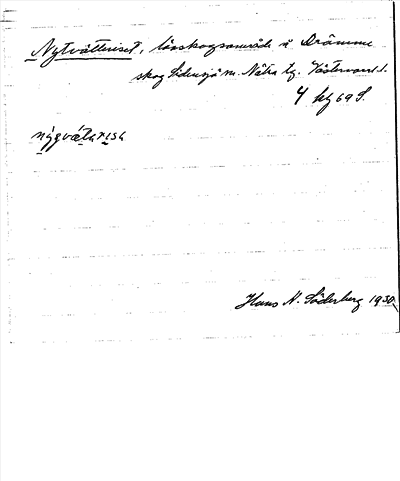 Nytvätteriset, lövskogsområde å Drömme
skog Sidensjö sn. Nätra tg. Västernorrl. l.
4 kg 69 S.
nýgvátarisa
Hans N. Söderberg 1930.